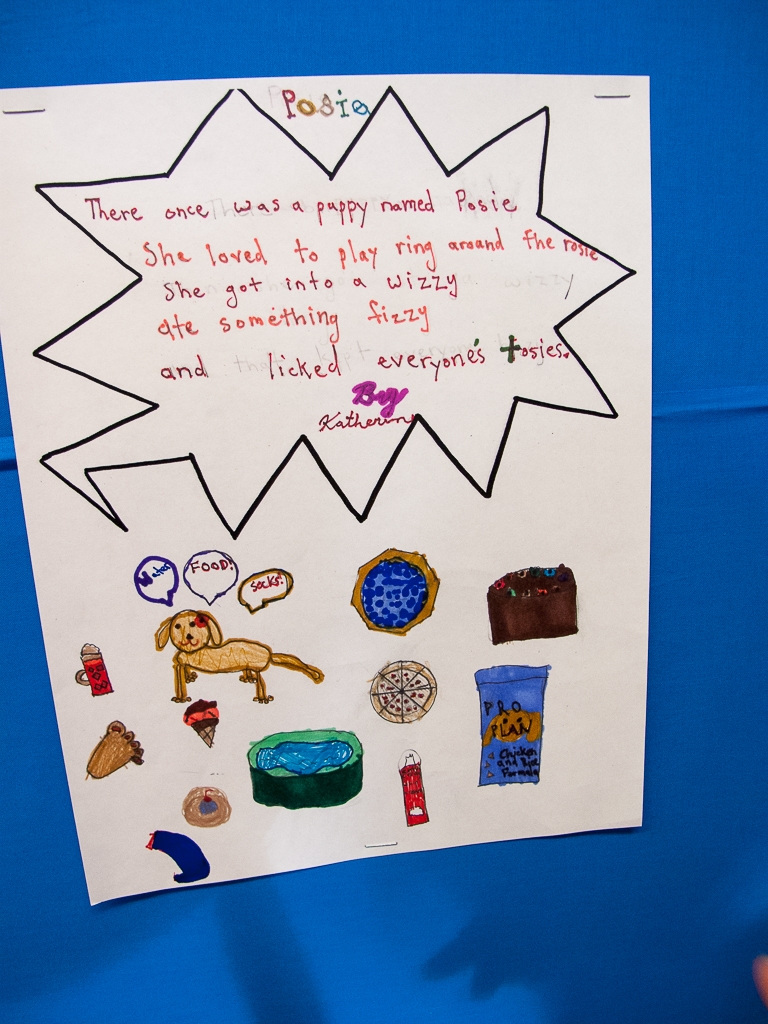 Posie
There once was a puppy named Posie
She loved to play ring around the rosie
She got into a wizzy
ate something fizzy
and licked everyone's tosies.
By
Katherine
Water
FOOD!
Socks!
PRO
PLAN
Chicken
and Rice
Formula